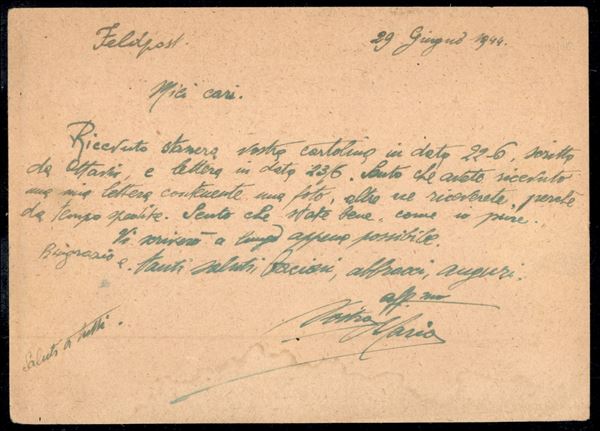 Feldpost.
29 Giugno 1944.
Miei cari.
Ricevuto stasera vostra cartolina in data 22-6, scritto
da Ottavia, e lettera in data 23/6. Sento che avete ricevuto
una mia lettera contenente una foto, altre ne riceverete, perché
da tempo spedite. Sento che state bene, come io pure.
Vi scriverò a lungo appena possibile.
Ringrazio e tanti saluti bacioni, abbracci, auguri.
aff.mo
Vostro
Mario
Saluti a tutti.